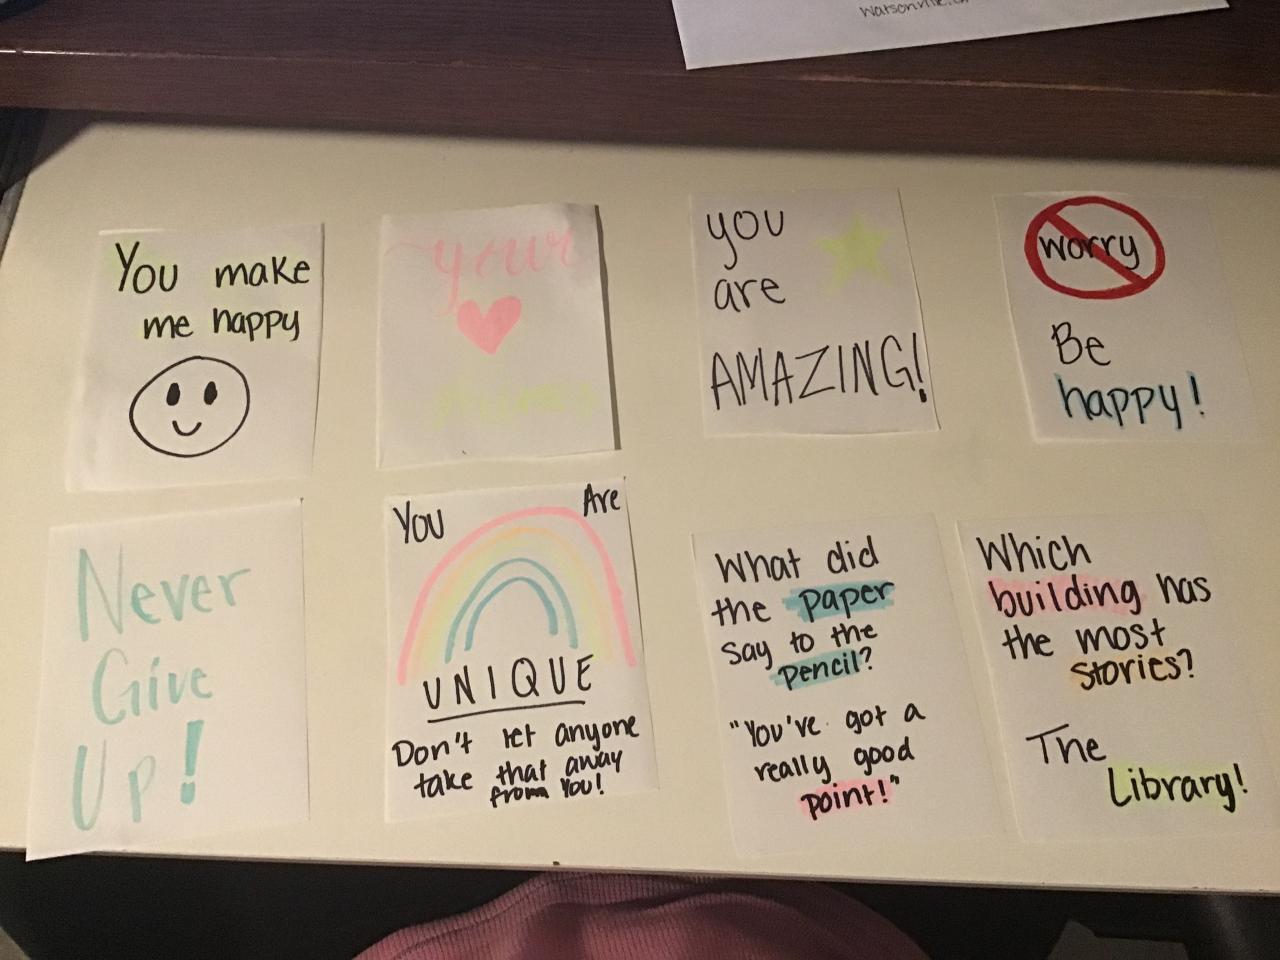 Watsonville, CA
You make
me happy
your
you
are
AMAZING!
worry
Be
happy!
Never
Give
Up!
You Are
UNIQUE
Don't let anyone
take that away
from You!
What did
the paper
say to the
pencil?
"You've got a
really good
point!"
Which
building has
the most
stories?
The
Library!